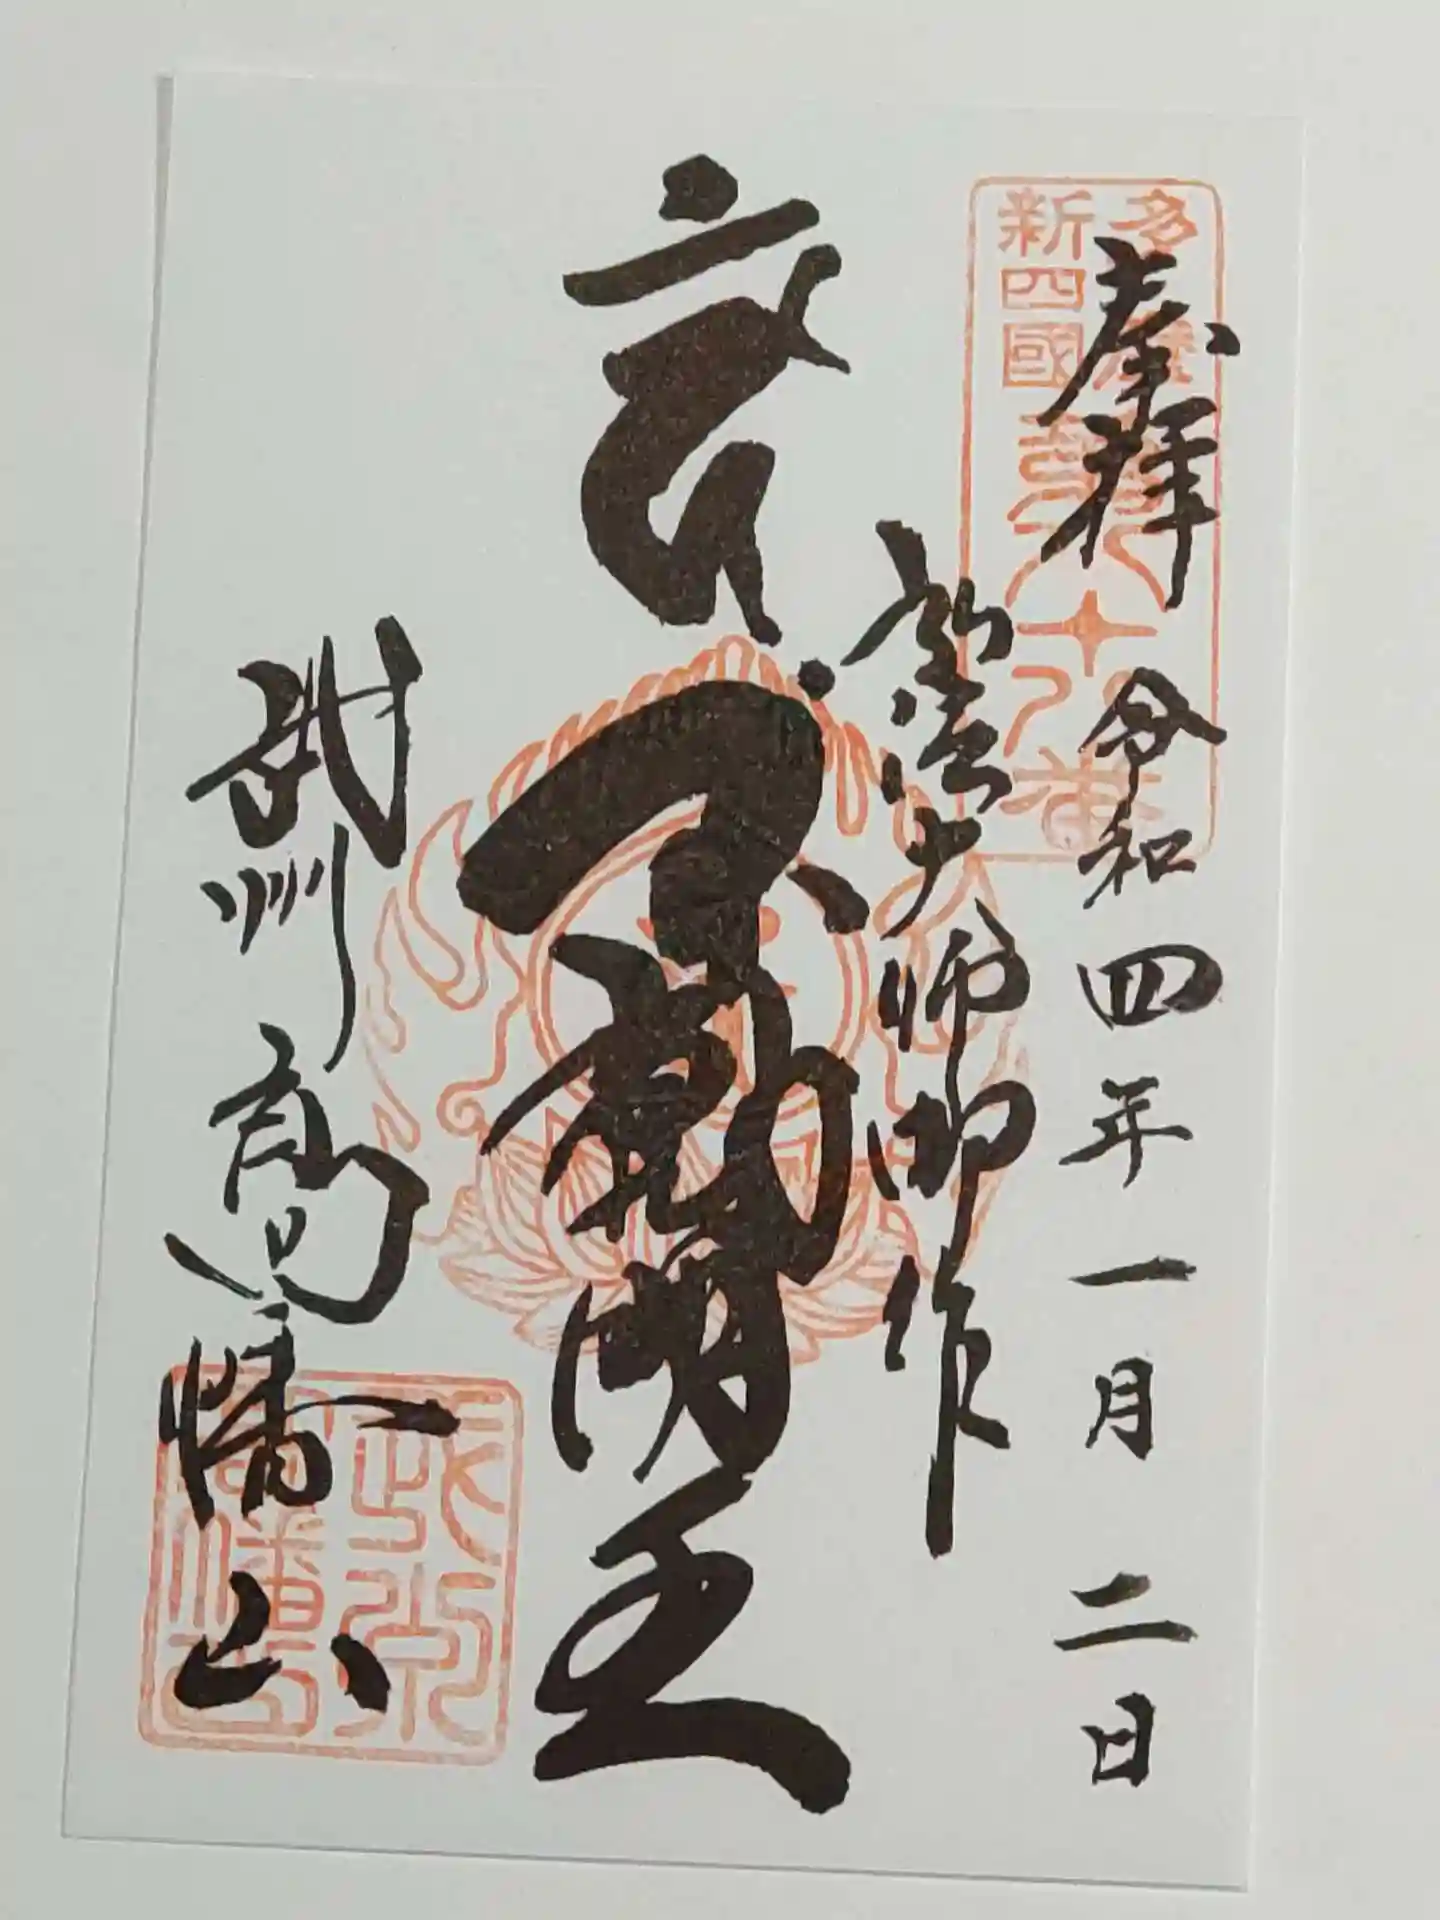 奉拝 令和四年一月二日
多摩
新四國
第八十八番
大師御作
不動明王
武州高幡山